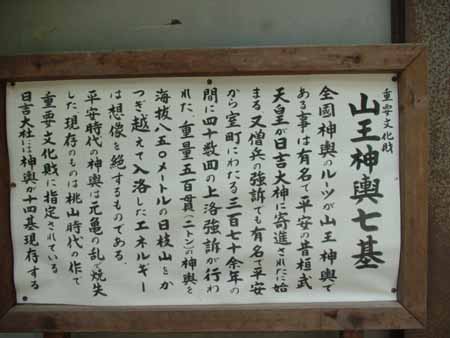 重要文化財
山王神輿七基
全國神輿のルーツが山王神輿で
ある事は有名で平安の昔桓武
天皇が日吉大神に寄進された𛂞始
まる又僧兵の強訴でも有名で平安
から室町にわたる三百七十余年の
間に四十数回の上洛強訴が行わ
れた、重量五百貫(二トン)の神輿を
海抜八五〇メートルの日枝山をか
つぎ越えて入洛したエネルギー
は想像を絶するものである、
平安時代の神輿は元亀の乱で焼失
した現存のものは桃山時代の作で
重要文化財に指定されている
日吉大社には神輿が十四基現存する